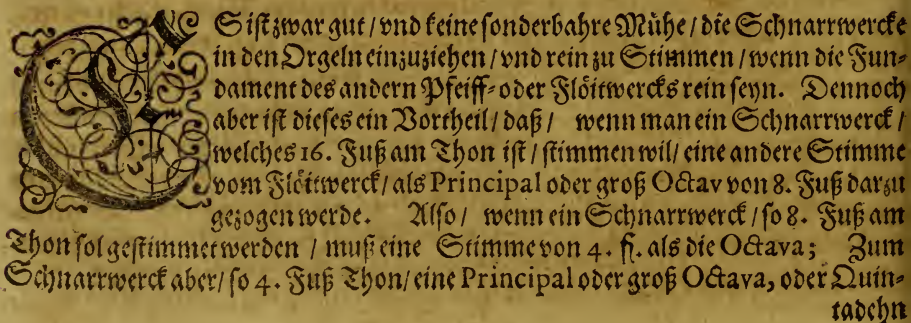 ES ist zwar gut / vnd keine sonderbahre Mühe / die Schnarrwercke
in den Orgeln einzuziehen / vnd rein zu Stimmen / wenn die Fun-
dament des andern Pfeiff- oder Flöittwercks rein seyn. Dennoch
aber ist dieses ein Vortheil / daß / wenn man ein Schnarrwerck /
welches 16. Fuß am Thon ist / stimmen wil / eine andere Stimme
vom Flöittwerck / als Principal oder groß Octav von 8. Fuß darzu
gezogen werde. Also / wenn ein Schnarrwerck / so 8. Fuß am
Thon sol gestimmet werden / muß eine Stimme von 4. f. als die Octava; Zum
Schnarrwerck aber / so 4. Fuß Thon / eine Principal oder groß Octava, oder Quin-
tadehn